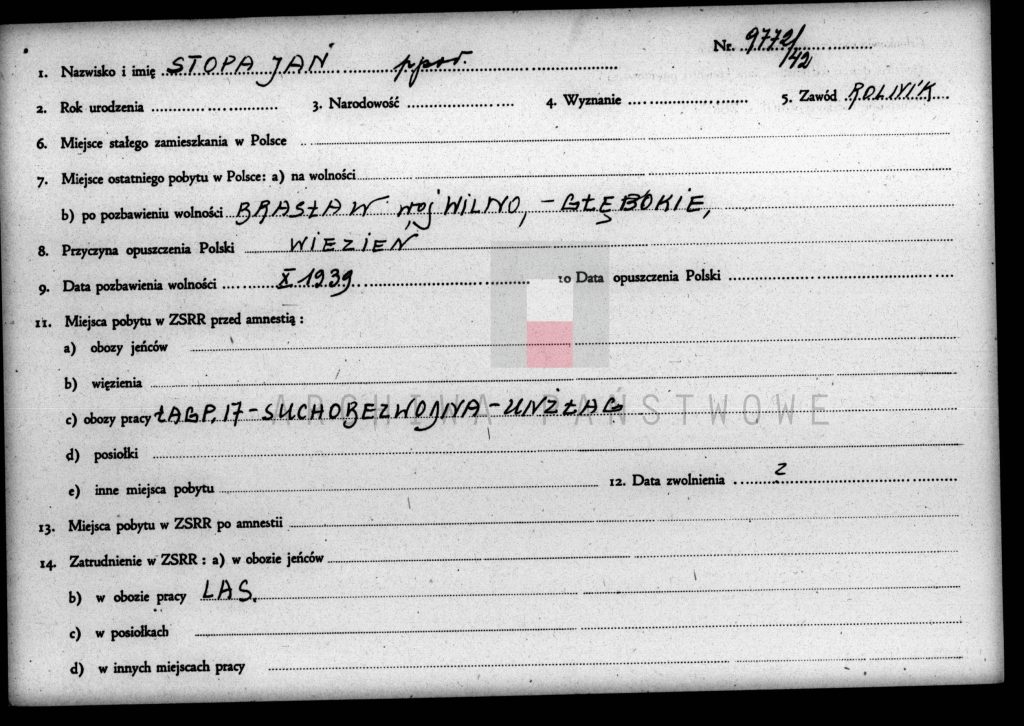 Nr. 9772/42
1. Nazwisko i imię STOPA JAŃ ppor.
2. Rok urodzenia 3. Narodowość 4. Wyznanie 5. Zawód ROLNIK
6. Miejsce stałego zamieszkania w Polsce
7. Miejsce ostatniego pobytu w Polsce: a) na wolności
b) po pozbawieniu wolności BRASŁAW woj WILNO, - GŁĘBOKIE,
8. Przyczyna opuszczenia Polski WIEZIEŃ
9. Data pozbawienia wolności X 1939 10 Data opuszczenia Polski
11. Miejsca pobytu w ZSRR przed amnestią :
a) obozy jeńców
b) więzienia
c) obozy pracy ŁAGP. 17 - SUCHOBEZWOJNA - UNŻŁAG
ARCHIWA PAŃSTWOWE
d) posiołki
e) inne miejsca pobytu 12. Data zwolnienia
13. Miejsca pobytu w ZSRR po amnestii
14. Zatrudnienie w ZSRR : a) w obozie jeńców
b) w obozie pracy LAS.
c) w posiołkach
d) w innych miejscach pracy